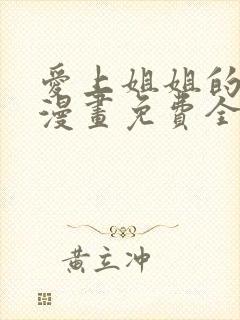 愛上姐姐的
漫畫免費全
黃立冲